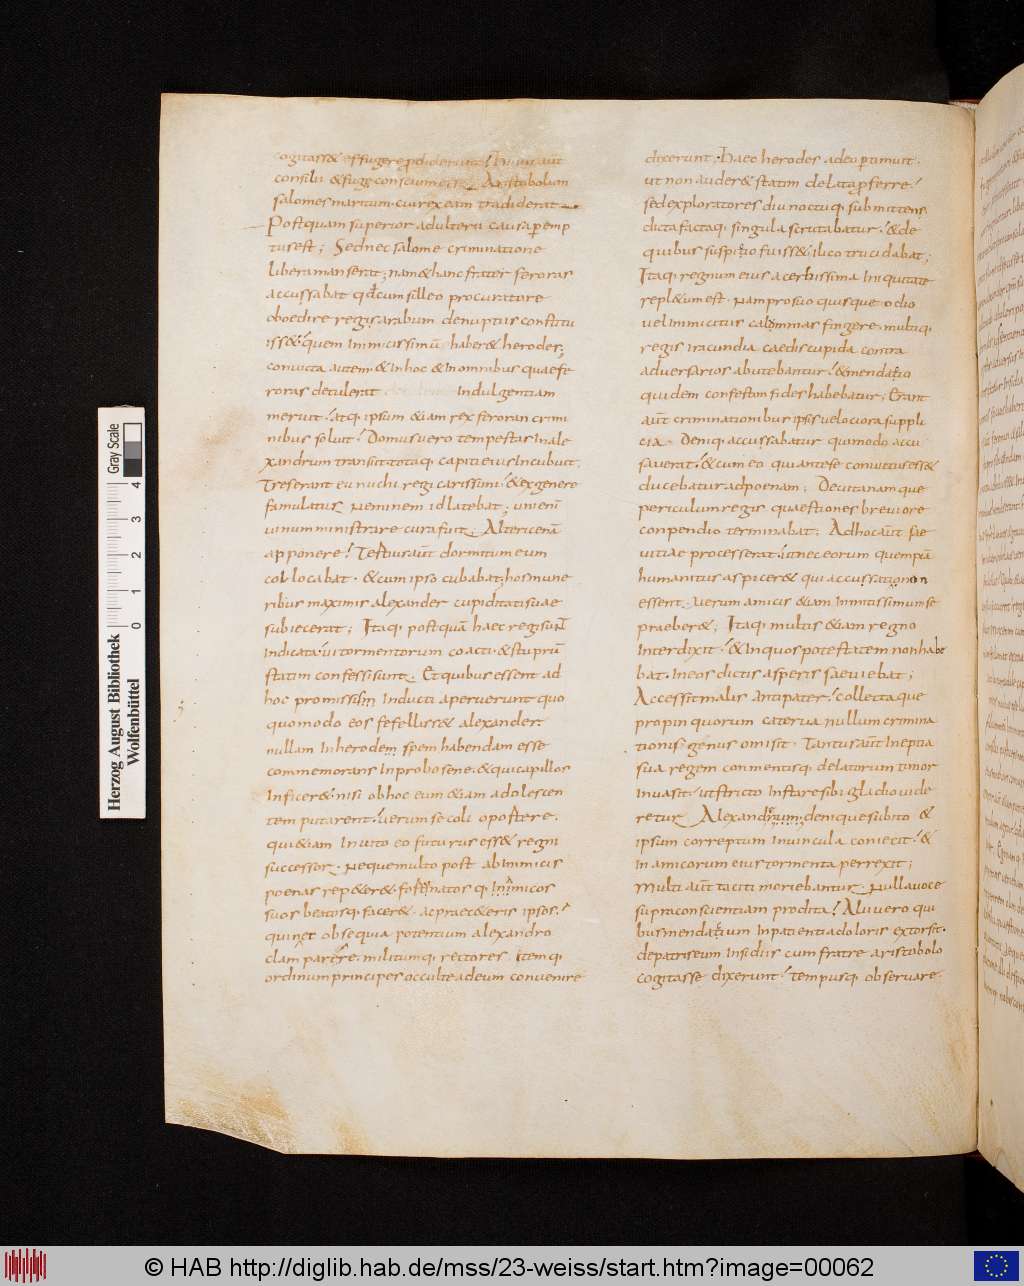 cogitass& effugere pdiderunt
consilii & fuge Aristobolum
salomes maritum cui rex eam tradiderat
Postquam superior adulterii causa pemp
tus est; Sed nec salome criminatione
libera manserat; nam & hanc frater feroras
accussabat qđ cum silleo procuratore
oboedire regis arabum de nuptiis constitu
iss& quem inimicissimū haber& herodes;
convicta autem & in hoc & in omnibus quae fe
roras detulerat Indulgentiam
meruit atq; ipsum &iam rex feroran crimi
nibus soluit Domus vero tempestas in ale
xandrum transiit totaq; capiti eius Incubuit.
Tres erant eunuchi regi carissimi & ex genere
famulatus neminem id latebat; uni enī
uinum ministrare cura fuit; Alteri cenā
apponere Tertius aūt dormitum eum
collocabat. & cum ipso cubabat; hos mune
ribus maximis alexander cupiditati suae
subiecerat; Itaq; postquā haec regi sunt
Indicata ui tormentorum coacti & stuprū
statim confessi sunt. Et quibus essent ad
hoc promissis Inducti aperuerunt quo
quomodo eos fefelliss& alexander
nullam In herodem spem habendam esse
commemorans Inprobo sene. & qui capillos
Inficer& nisi ob hoc eum &iam adolescen
tem putarent. uerum se coli oportere.
qui &iam Inuito eo futurus ess& regni
successor. neque multo post ab Inimicis
poenas rep&er& Inimicos
suos beatosq; facer&. ac prae c&eris ipsos.
quin et obsequia potentium alexandro
clam parere. militumq; rectores. Item q;
ordinum principes occulte ad eum convenire
dixerunt. Haec herodes adeo ptimuit.
ut non auder& statim delata pferre.
sed exploratores diu noctuq; submittens
dicta factaq; singula scrutabatur. & de
quibus suspitio fuiss& ilico trucidabat;
Itaq; regnum eius acerbissima Iniquitate
repl&um est. nam pro suo quisque odio
uel Inimicitiis calumnias fingere. multiq;
regis iracundia caedis cupida contra
adversarios abutebantur & mendatio
quidem confestim fides habebatur; Erant
aūt criminationibus ipsis velociora suppli
cia. Deniq; accussabatur qui modo accu
saverat. & cum eo qui ante se convictus ess&
ducebatur ad poenam; De vita namque
periculum regis quaestiones breviore
conpendio terminabat; Ad hoc aūt sae
vitiae processerat. ut nec eorum quempiā
humanitus aspicer& qui accussati non
essent. uerum amicis &iam Inmitissimum se
praeber&; Itaq; multis &iam regno
Interdixit. & In quos potestatem non habe
bat. In eos dictis asperis saeviebat;
Accessit malis antipater. collectaque
propinquorum caterva nullum crimina
tionis genus omisit. Tantus aūt Ineptia
sua regem conmentisq; delatorum timor
Invasit. ut stricto Instare sibi gladio vide
retur. Alexandrum denique subito &
ipsum correptum Invincula coniecit. &
In amicorum eius tormenta perrexit;
Multi aūt taciti moriebantur. Nulla voce
supra conscientiam prodita. Alii vero qui
bus mendatium Inpatientia doloris extorsit.
de patris eum Insidiis cum fratre aristobolo
cogitasse dixerunt. tempusq; observare.
Herzog August Bibliothek
Wolfenbüttel
0 1 2 3 4
Gray Scale
© HAB http://diglib.hab.de/mss/23-weiss/start.htm?image=00062